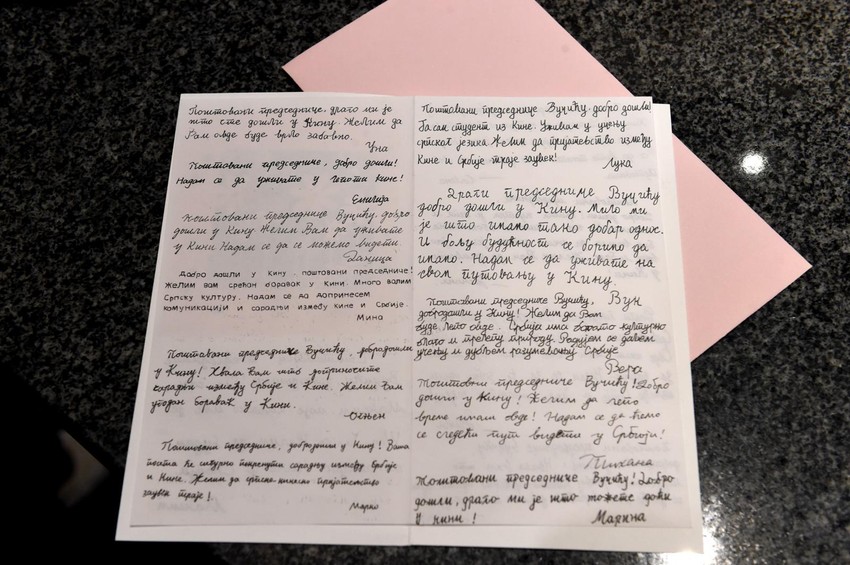 Поштовани председниче, драго ми је
што сте дошли у Кину. Желим да
Вам овде буде врло забавно.
Уна
Поштовани председниче, добро дошли!
Надам се да уживате у лепоти Кине!
Емилија
Поштовани председниче Вучићу, добро
дошли у Кину. Желим Вам да уживате
у Кини. Надам се да се можемо видети.
Даница
Добро дошли у Кину, поштовани председниче!
Желим вам срећан боравак у Кини. Много волим
Српску културу. Надам се да допринесем
комуникацији и сарадњи између Кине и Србије.
Мина
Поштовани председниче Вучићу, добродошли
у Кину! Хвала Вам што доприносите
сарадњи између Србије и Кине. Желим Вам
угодан боравак у Кини.
Огњен
Поштовани председниче, добродошли у Кину! Ваша
посета ће сигурно покренути сарадњу између Србије
и Кине. Желим да српско-кинеско пријатељство
заувек траје!
Марко
Поштовани председниче Вучићу, добро дошли!
Ја сам студент из Кине. Уживам у учењу
српског језика. Желим да пријатељство између
Кине и Србије траје заувек!
Лука
Драги председниче Вучићу
добро дошли у Кину. Мило ми
је што имамо тако добар однос.
И бољу будућност се боримо да
имамо. Надам се да уживате на
свом путовању у Кину.
Вун
Поштовани председниче Вучићу,
добродошли у Кину! Желим да Вам
буде лепо овде. Србија има богато културно
благо и прелепу природу. Радујем се даљем
учењу и дубљем разумевању Србије
Вера
Поштовни председниче Вучићу! Добро
дошли у Кину! Желим да лепо
време имам овде! Надам се да ћемо
се следећи пут видети у Србији!
Тихана
Поштовани председниче Вучићу! Добро
дошли, драго ми је што можете доћи
у Кини!
Марина